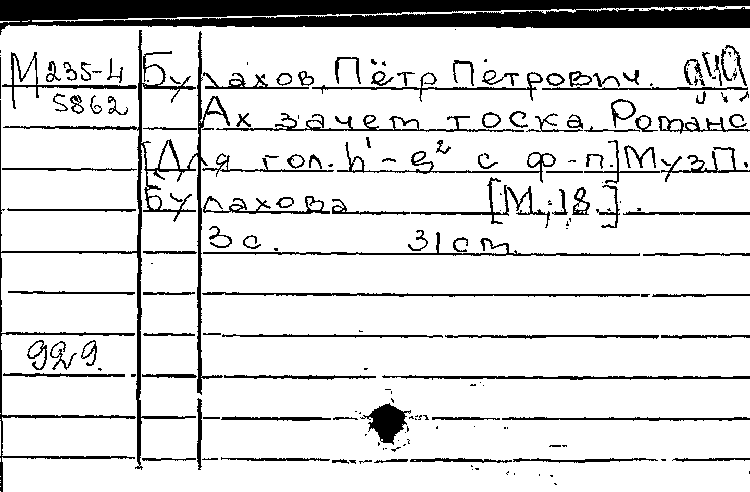 М 235-4 Булахов, Пётр Петрович.
5862 Ах зачем тоска. Романс
[Для гол. h¹ - g² с ф-п.] Муз. П.
Булахова [М., 18 ].
3 с. 31 cm.
929.